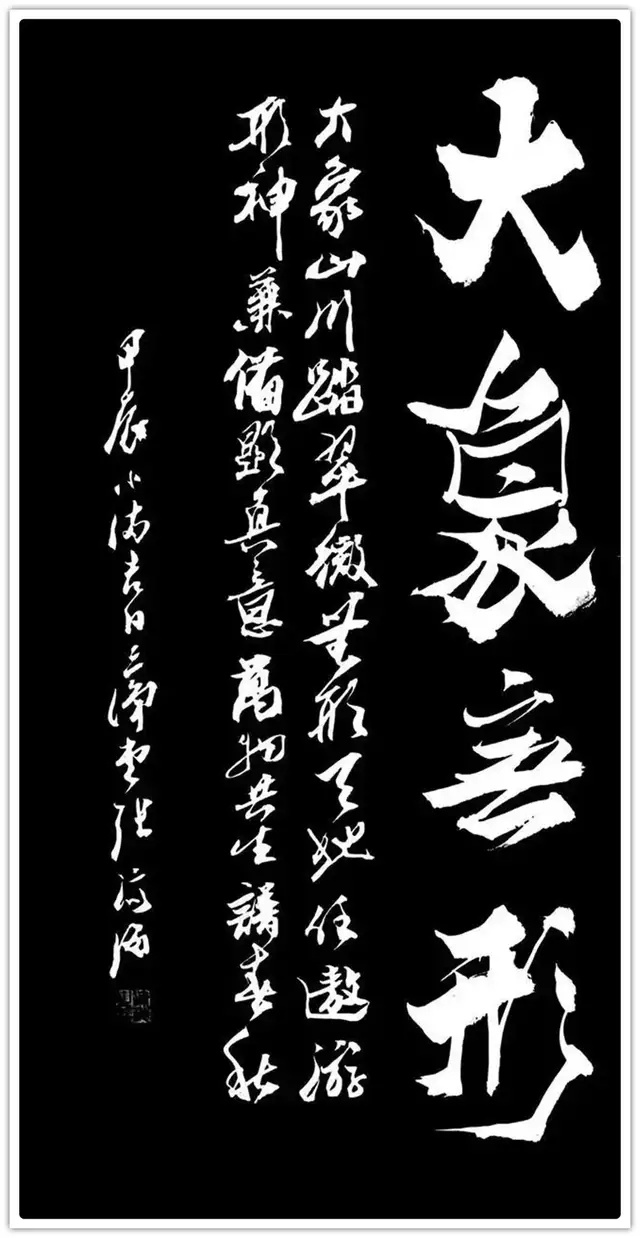 大象無形
大象山川踏翠微無形天地任遨游
形神兼備顯真意萬物共生譜春秋
甲辰小滿吉日三